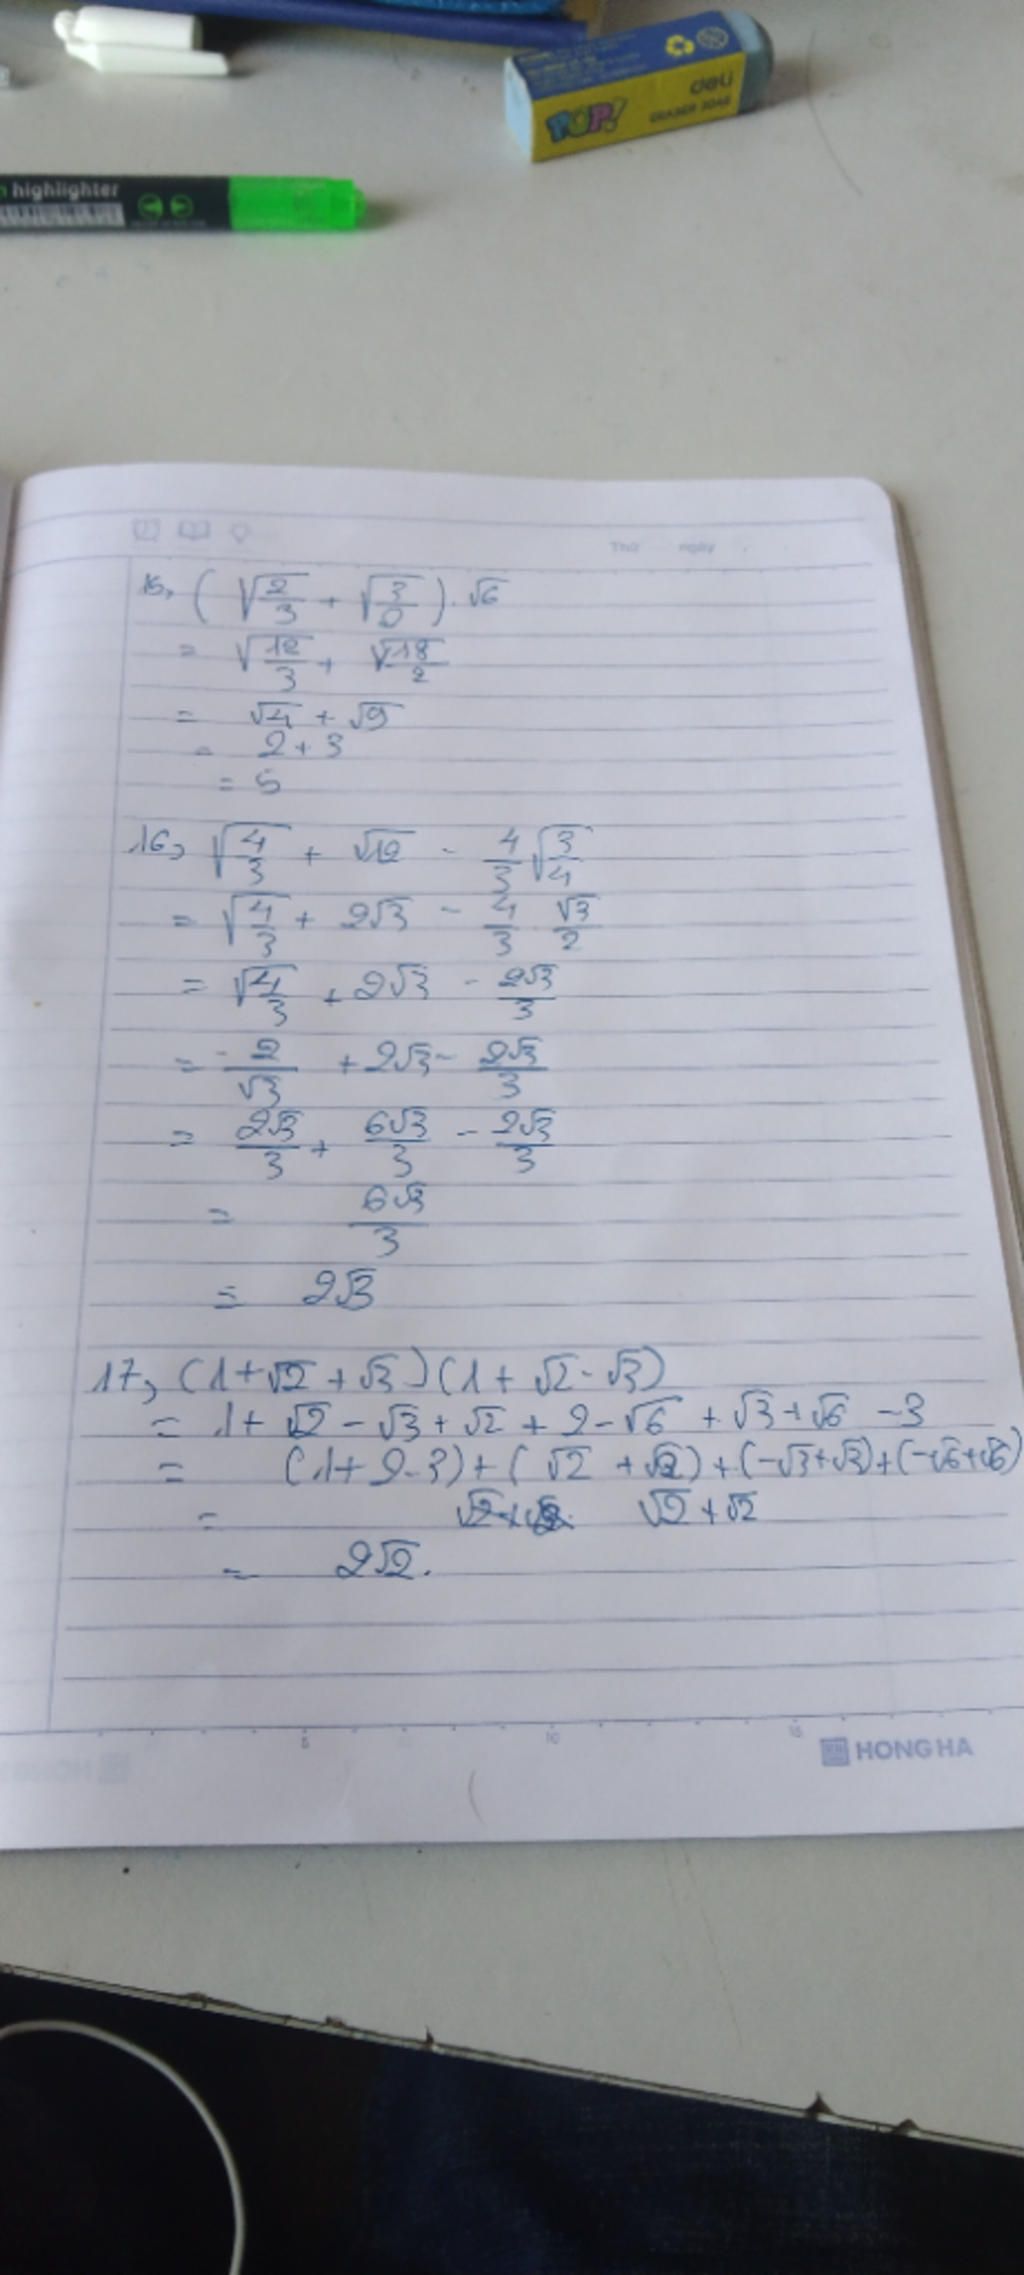 deli
POP!
ERASER 3046
highlighter
Thứ ngày
15, (√(2/3) + √(3/2)) . √6
= √(12/3) + √(18/2)
= √4 + √9
= 2 + 3
= 5
16, √(4/3) + √12 - 4/3 √(3/4)
= √(4/3) + 2√3 - 4/3 . √3/2
= √(4/3) + 2√3 - 2√3/3
= 2/√3 + 2√3 - 2√3/3
= 2√3/3 + 6√3/3 - 2√3/3
= 6√3/3
= 2√3
17, (1+√2 + √3)(1+ √2 - √3)
= 1+ √2 - √3 + √2 + 2 - √6 + √3 + √6 - 3
= (1+2-3)+(√2 + √2)+(-√3+√3)+(-√6+√6)
= √2 + √2
= 2√2.
5 10 15
HONG HA